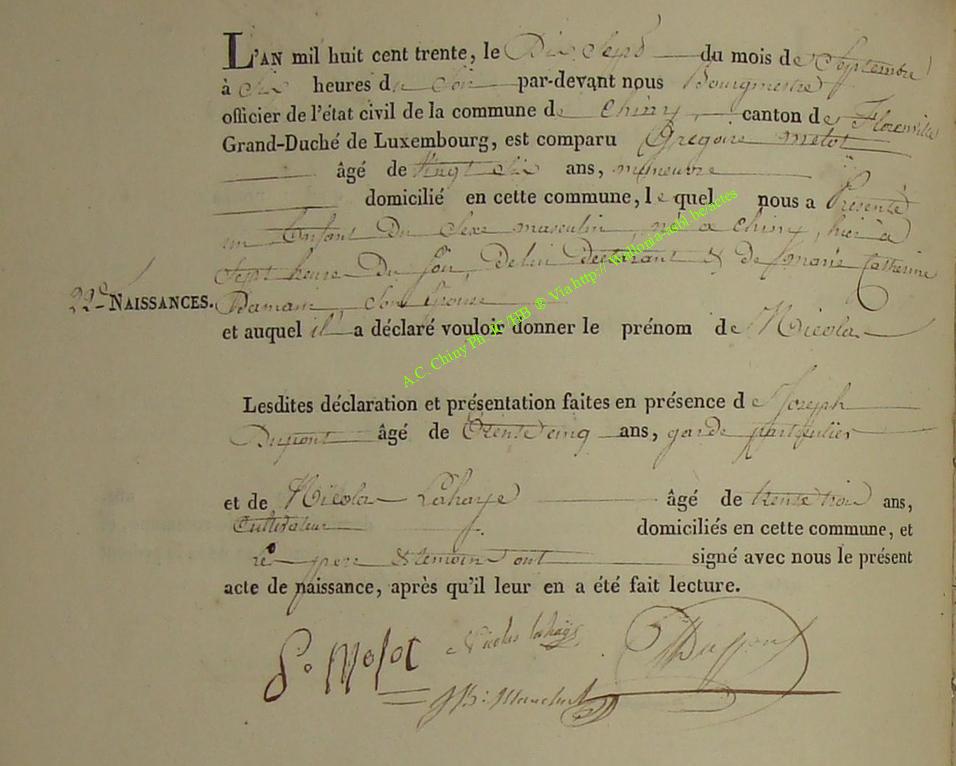 L'AN mil huit cent trente, le Dix Sept du mois de Septembre
à Six heures du Soir par-devant nous Bourgmestre
officier de l'état civil de la commune de Chiny, canton de Florenville
Grand-Duché de Luxembourg, est comparu Grégoire Melot
âgé de Vingt Six ans, maneuvre
domicilié en cette commune, lequel nous a Présenté
un Enfant Du Sexe masculin, né a Chiny, hier à
Sept heure Du Soir, De lui déclarant & de marie Catherine
22e NAISSANCES. Son Epouse
et auquel il a déclaré vouloir donner le prénom de Nicolas
Lesdites déclaration et présentation faites en présence de Joseph
Dupont âgé de trente cinq ans, garde particulier
et de Nicolas Lahaye âgé de trente trois ans,
Cultivateur domiciliés en cette commune, et
le pere & temoins ont signé avec nous le présent
acte de naissance, après qu'il leur en a été fait lecture.
G. Melot Nicolas lahaye Dupont
A.C. Chiny Ph JL/HB ® Via http://wallonia-asbl.be/actes